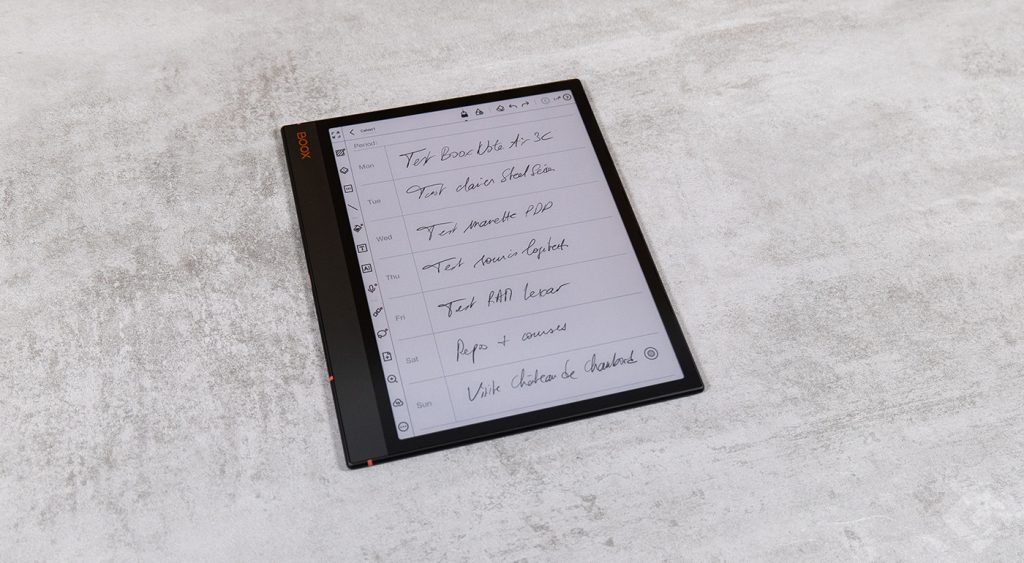 BOOX
Cahier1
Period:
Mon Test Boox Note Air 3C
Tue Test clavier SteelSeries
Wed Test manette PDP
Thu Test souris logitech
Fri Test RAM lexar
Sat Repos + courses
Sun Visite Château de Chambord